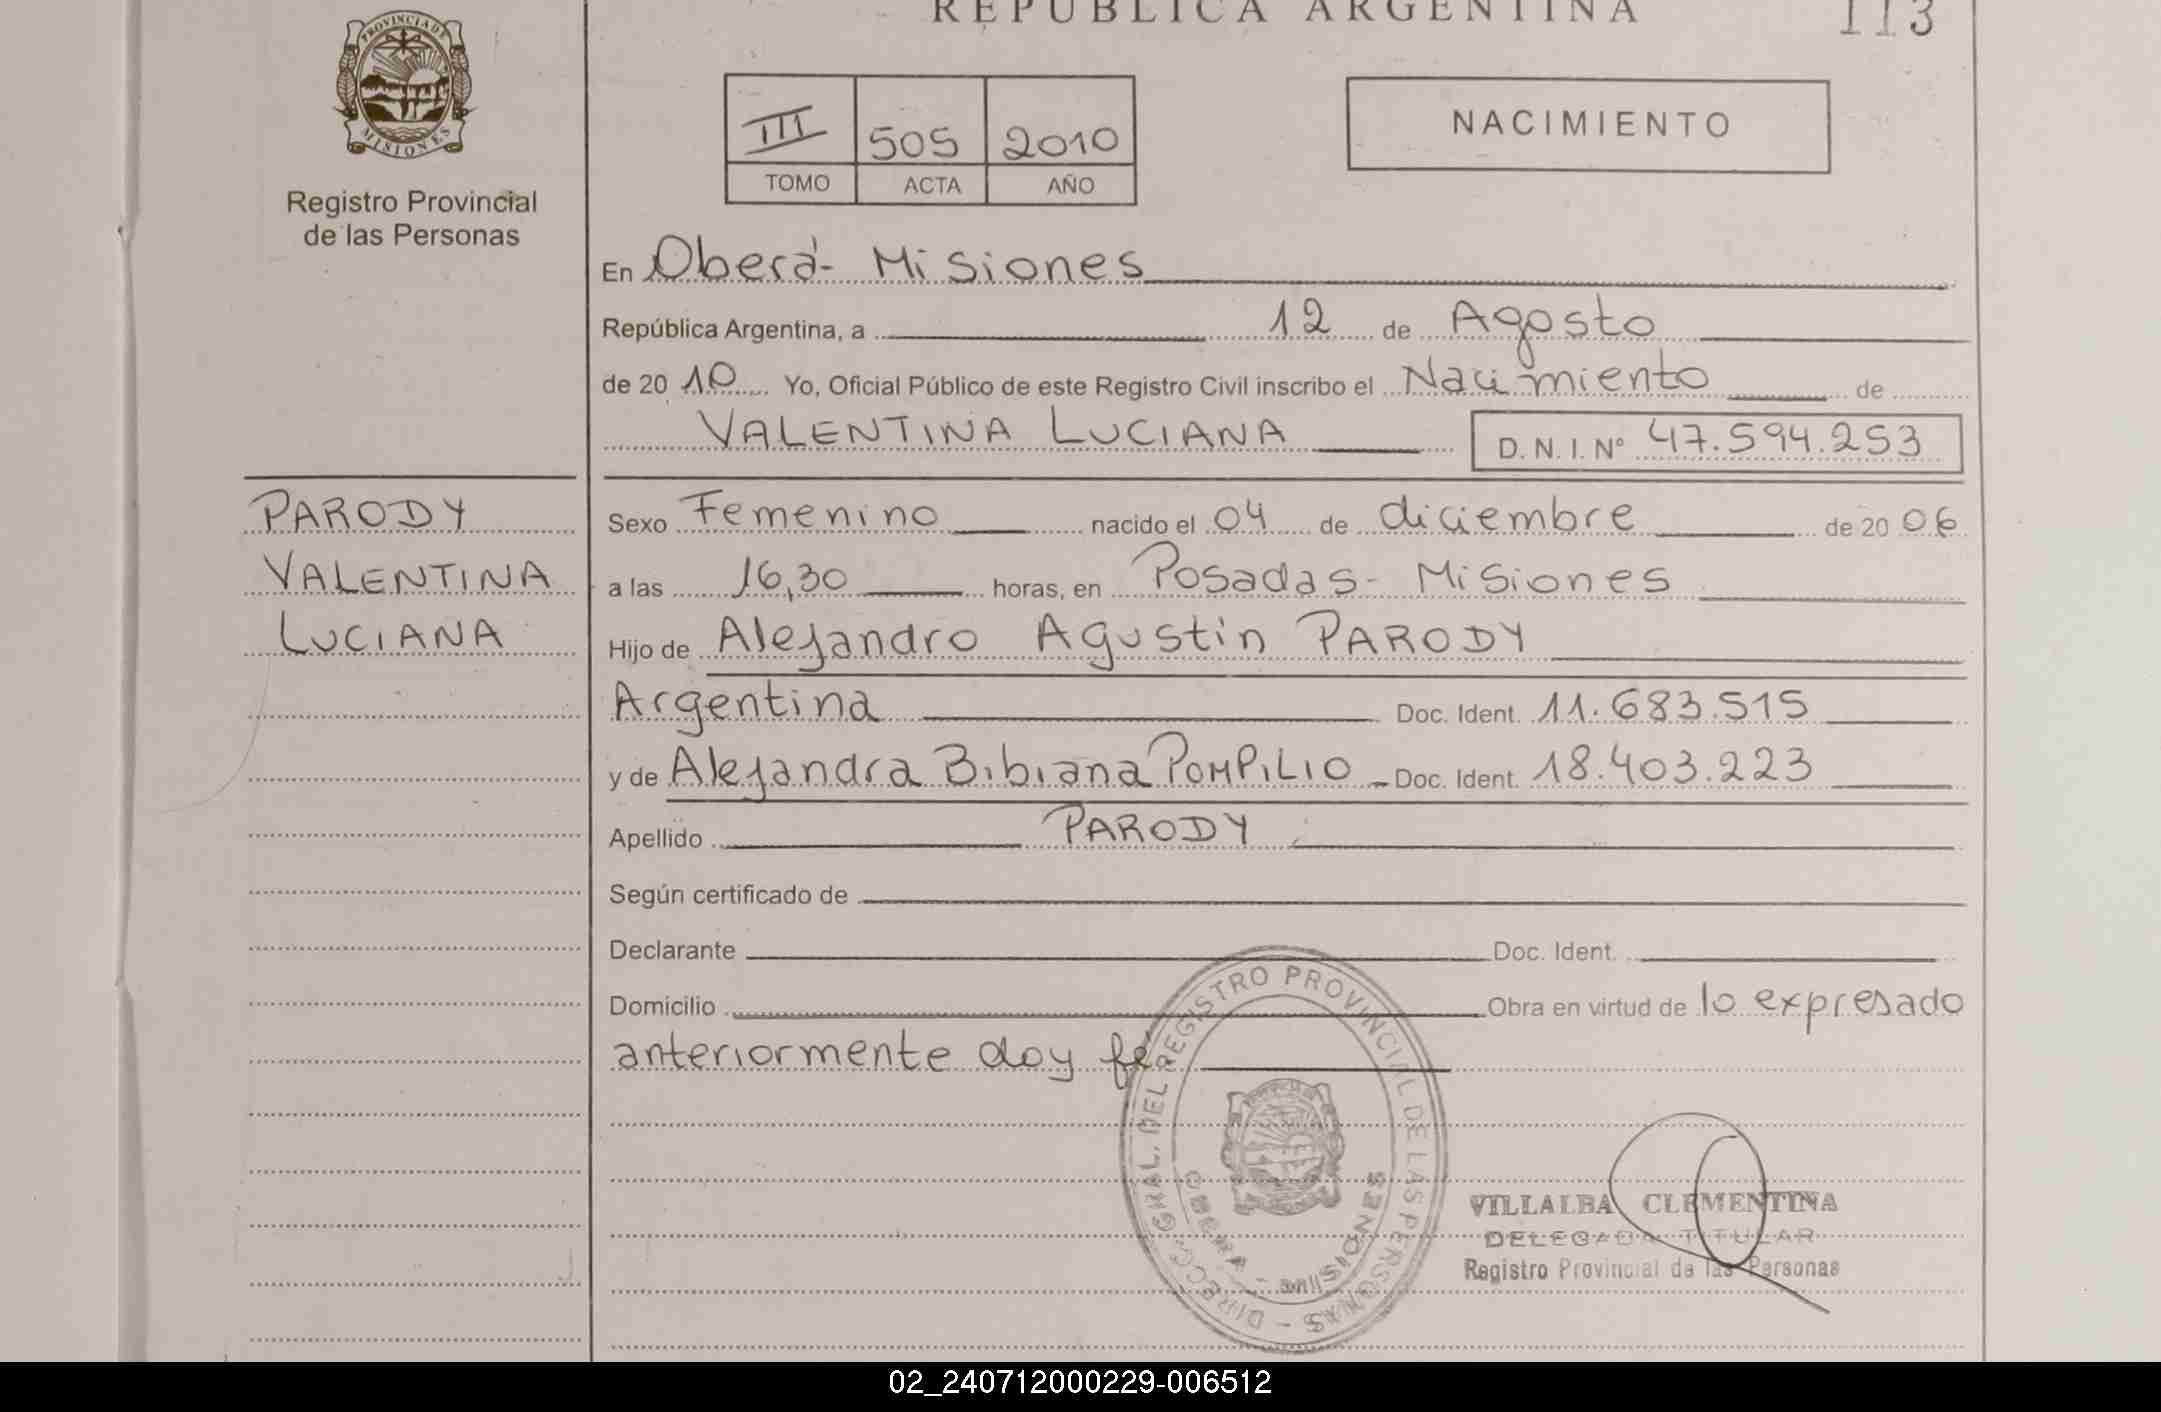 REPUBLICA ARGENTINA
113
PROVINCIA DE MISIONES
Registro Provincial
de las Personas
III 505 2010
TOMO ACTA AÑO
NACIMIENTO
En Oberá- Misiones
República Argentina, a 12 de Agosto
de 20 10 Yo, Oficial Público de este Registro Civil inscribo el Nacimiento de
VALENTINA LUCIANA D.N.I. Nº 47.594.253
PARODY
VALENTINA
LUCIANA
Sexo Femenino nacido el 04 de diciembre de 20 06
a las 16,30 horas, en Posadas- Misiones
Hijo de Alejandro Agustin PARODY
Argentina Doc. Ident. 11.683.515
y de Alejandra Bibiana POMPILIO Doc. Ident. 18.403.223
Apellido PARODY
Según certificado de
Declarante Doc. Ident.
Domicilio Obra en virtud de lo expresado
anteriormente doy fé
DIRECC. GRAL. DEL REGISTRO PROVINCIAL DE LAS PERSONAS -
OBERA - MISIONES
VILLALBA CLEMENTINA
DELEGADA TITULAR
Registro Provincial de las Personas
02_240712000229-006512